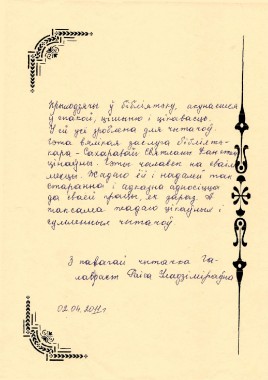 Прыходзячы ў бібліятэку, акунаешся
ў спакой, цішыню і цікавасць.
У ёй усё зроблена для чытачоў.
Гэта вялікая заслуга бібліятэ-
кара - Сахаравай Святланы
цікаўны. Гэты чалавек на сваім
месцы. Жадаю ёй і надалей так
старанна і адносіцца
да сваёй працы, як зараз. А
таксама жадаю цікаўных і
сумленных чытачоў.
З павагай чытачка Га-
Раіса Уладзіміраўна
02.04.2011г